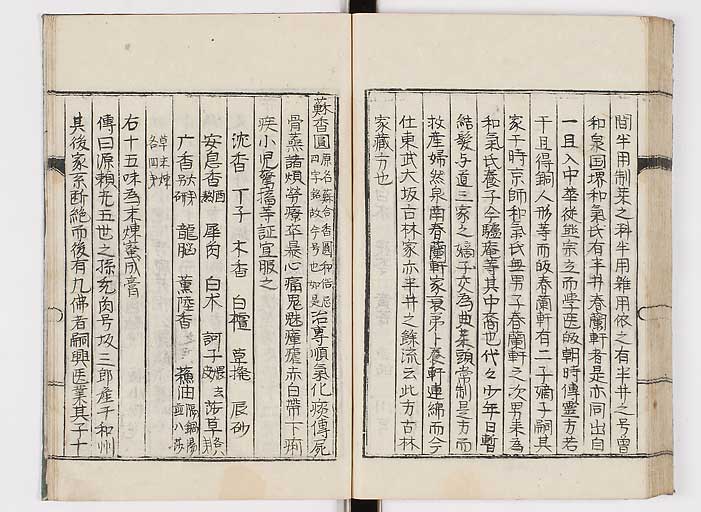 間半用制茶之料半用雜用依之有半井之号曽
和泉国堺和氣氏有半井春蘭軒者是亦同出自
一旦入中華從熊宗立而学医皈朝時傳灵方若
干且得銅人形等而皈春蘭軒有二子嫡子嗣其
家于時京師和氣氏無男子春蘭軒之次男来為
和氣氏養子今驢庵等其中裔也代々少年日暫
結髪与道三家之嫡子交為典薬頭常制是方而
救産婦然泉南春蘭軒家衰弟卜養軒連綿而今
仕東武大坂古林家亦半井之餘流云此方古林
家蔵方也
蘇香圓 原名蘇合香圓和俗忌四字銘故今号也如是 治專順氣化痰傳屍
骨蒸諸煩勞療卒暴心痛鬼魅瘴瘧赤白帯下痢
疾小児驚搐等証宜服之
沈香 丁子 木香 白檀 蓽撥 辰砂
安息香 酒 犀肉 白朮 訶子 煨去
广香 龍脳 薫陸香 蘓油
草末煉各四
右十五味為末煉蜜成膏
傳曰源頼光五世之孫充肉号坂三郎産于和州
其後家系断絶而後有九佛者嗣興医業其子十